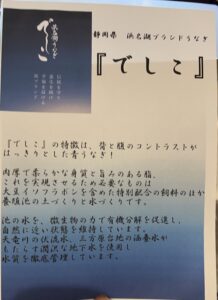 浜名湖うなぎ
でしこ
静岡県 浜名湖ブランドうなぎ
『でしこ』
『でしこ』の特徴は、背と腹のコントラストが
はっきりとした青うなぎ!
肉厚で柔らかな身質と旨みのある脂。
これを実現させるため必要なものは
大豆イソフラボンを含めた特別配合の飼料のほか
養殖池の土づくりと水づくりです。
池の水を、微生物の力で有機分解を促進し、
自然に近い状態を維持しています。
天竜川の伏流水、三方原台地の涵養水が
もたらす潤沢な地下水を活用し
水質を徹底管理しています。